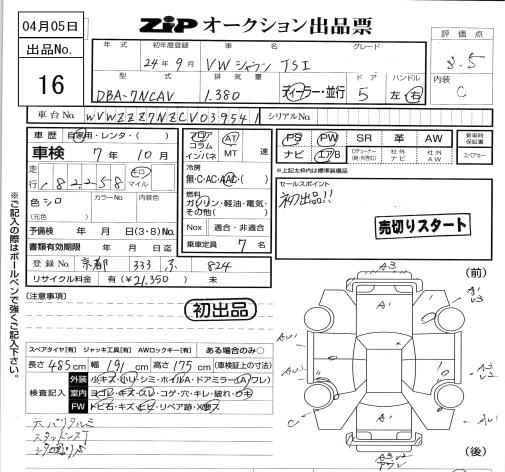 04月05日
ZiP オークション出品票
出品No.
16
年式 初年度登録 車名 グレード
24年9月 VW シャラン TSI
型式 排気量 ドア ハンドル
DBA-7NCAV 1.380 ディーラー・並行 5 左・右
評価点
3.5
内装
C
車台No. WVWZZZ7NZCV039541 シリアルNo.
車歴 自家用・レンタ・( )
車検 7年10月
走行 182,258 キロ マイル
色 シロ カラーNo. 内装色
(元色 )
予備検 年 月 日(3・8)No.
書類有効期限 年 月 日迄
登録No. 京都 333 ふ 824
リサイクル料金 有(¥21,350) 未
フロア コラム インパネ
AT MT 速
冷房
無・C・AC・AAC・( )
燃料
ガソリン・軽油・電気・その他( )
Nox 適合・非適合
乗車定員 7名
PS PW SR 革 AW
ナビ エアB 社外ナビ 社外AW
新車時保証書
スペアキー
※上記太枠内は標準装備品
セールスポイント
初出品!!
売切りスタート
【注意事項】
初出品
スペアタイヤ【有】 ジャッキ工具【有】 AWロックキー【有】 ある場合のみ○
長さ485cm 幅191cm 高さ175cm (車検証上の寸法)
検査記入
外装 小キズ・小リ・シミ・ホイルA・ドアミラー(A)ワレ)
室内 ヨゴレ・キズ・スレ・コゲ・穴・キレ・破れ・ウキ
FW トビ石・キズ・ヒビ・リペア跡・X要ス
※ご記入の際はボールペンで強くご記入下さい。
(前)
A3
A1
A1
A1
C
(後)